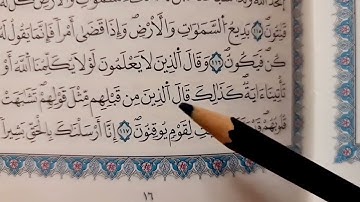 قَٰنِتُونَ ١١٦ بَدِيعُ ٱلسَّمَٰوَٰتِ وَٱلْأَرْضِ وَإِذَا قَضَىٰٓ أَمْرًا فَإِنَّمَا يَقُولُ لَهُۥ
كُن فَيَكُونُ ١١٧ وَقَالَ ٱلَّذِينَ لَا يَعْلَمُونَ لَوْلَا يُكَلِّمُنَا ٱللَّهُ أَوْ
تَأْتِينَآ ءَايَةٌ كَذَٰلِكَ قَالَ ٱلَّذِينَ مِن قَبْلِهِم مِّثْلَ قَوْلِهِمْ تَشَٰبَهَتْ
قُلُوبُهُمْ لِقَوْمٍ يُوقِنُونَ ١١٨ إِنَّآ أَرْسَلْنَٰكَ بِٱلْحَقِّ بَشِيرًا
١٦